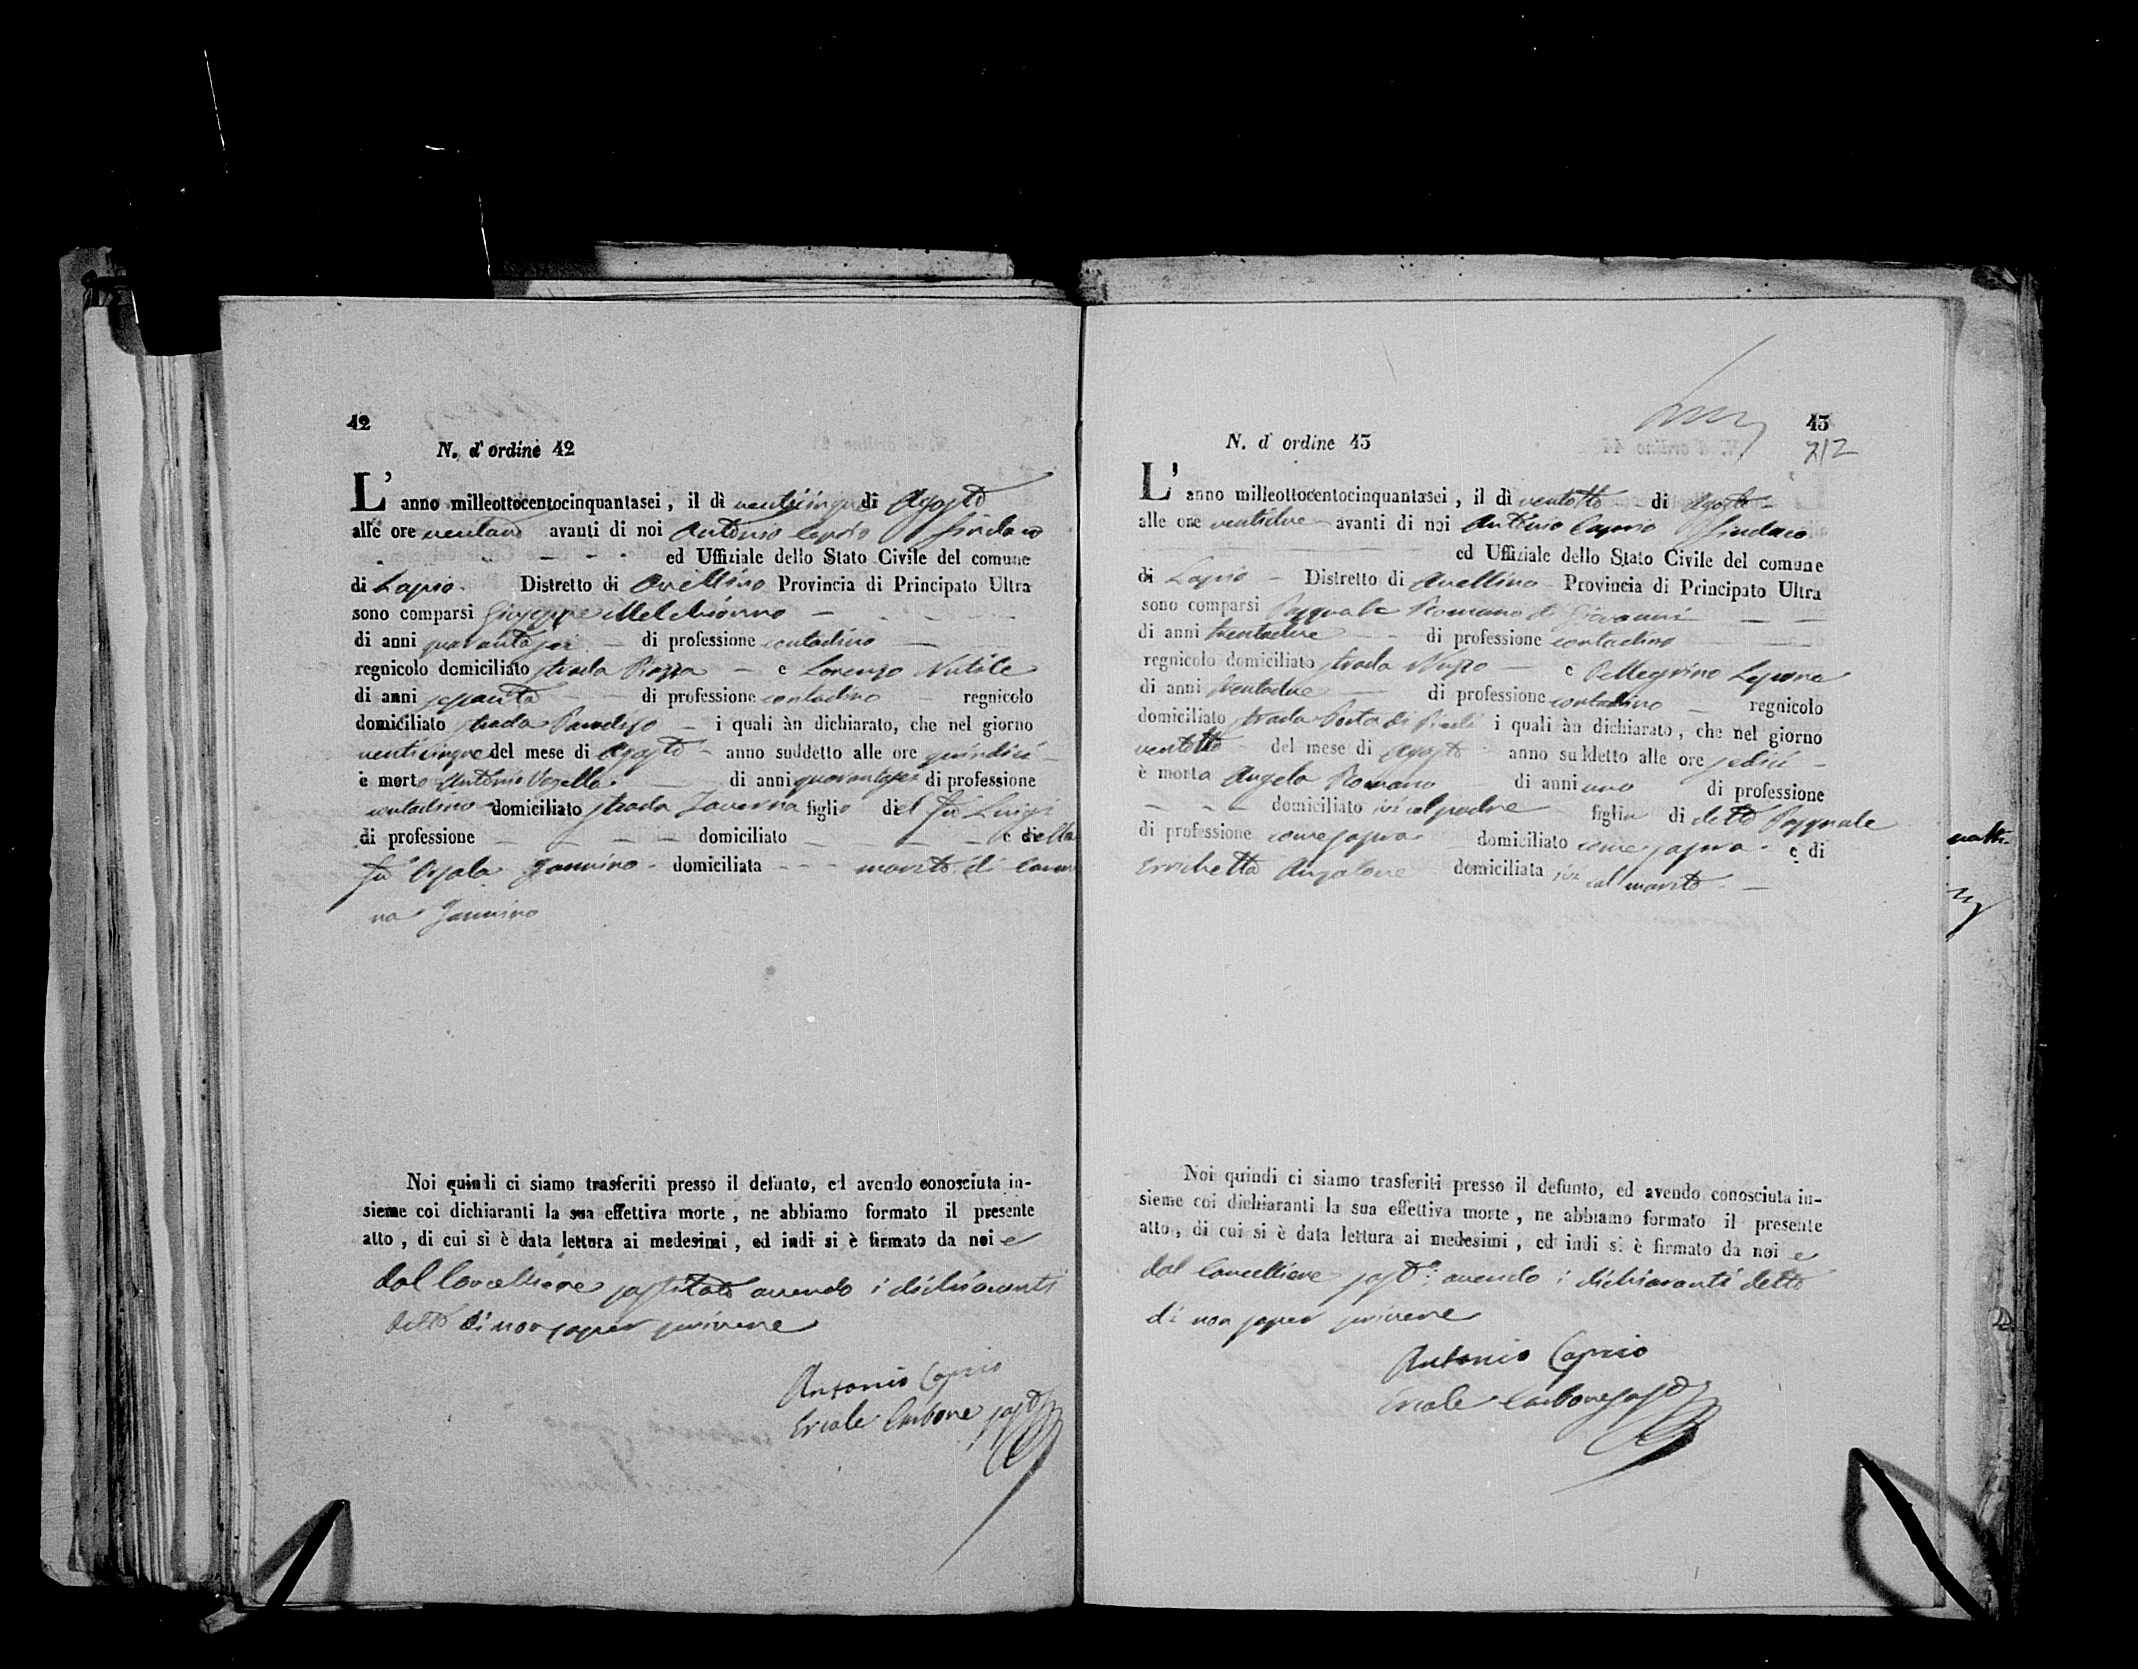 42
N. d'ordine 42
L'anno milleottocentocinquantasei, il dì venticinque di Agosto
alle ore ventuno avanti di noi Antonio Caprio Sindaco
ed Uffiziale dello Stato Civile del comune
di Lapio Distretto di Avellino Provincia di Principato Ultra
sono comparsi Giuseppe Melchionno
di anni quarantasei di professione contadino
regnicolo domiciliato strada Piazza e Lorenzo Natale
di anni sessanta di professione contadino regnicolo
domiciliato strada Paradiso i quali àn dichiarato, che nel giorno
venticinque del mese di Agosto anno suddetto alle ore quindici
è morto Antonio Vozella di anni quarantasei di professione
contadino domiciliato strada Taverna figlio del fu Luigi
di professione domiciliato e della
fu Orsola Jannino domiciliata marito di Carmi
na Jannino
Noi quindi ci siamo trasferiti presso il defunto, ed avendo conosciuta in-
sieme coi dichiaranti la sua effettiva morte, ne abbiamo formato il presente
atto, di cui si è data lettura ai medesimi, ed indi si è firmato da noi e
dal Cancelliere sostituto avendo i dichiaranti
detto di non saper scrivere
Antonio Caprio
Ercole Carbone sost.o
43
212
N. d'ordine 43
L'anno milleottocentocinquantasei, il dì ventotto di Agosto
alle ore ventidue avanti di noi Antonio Caprio Sindaco
ed Uffiziale dello Stato Civile del comune
di Lapio Distretto di Avellino Provincia di Principato Ultra
sono comparsi Pasquale Romano di Giovanni
di anni trentadue di professione contadino
regnicolo domiciliato strada e Pellegrino Lepore
di anni trentadue di professione contadino regnicolo
domiciliato strada Porta di i quali àn dichiarato, che nel giorno
ventotto del mese di Agosto anno suddetto alle ore sedici
è morta Angela Romano di anni uno di professione
domiciliato ivi col padre figlia di detto Pasquale
di professione come sopra domiciliato come sopra e di
Errichetta Anzalone domiciliata ivi col marito
Noi quindi ci siamo trasferiti presso il defunto, ed avendo conosciuta in-
sieme coi dichiaranti la sua effettiva morte, ne abbiamo formato il presente
atto, di cui si è data lettura ai medesimi, ed indi si è firmato da noi e
dal Cancelliere sost.o avendo i dichiaranti detto
di non saper scrivere
Antonio Caprio
Ercole Carbone sost.o